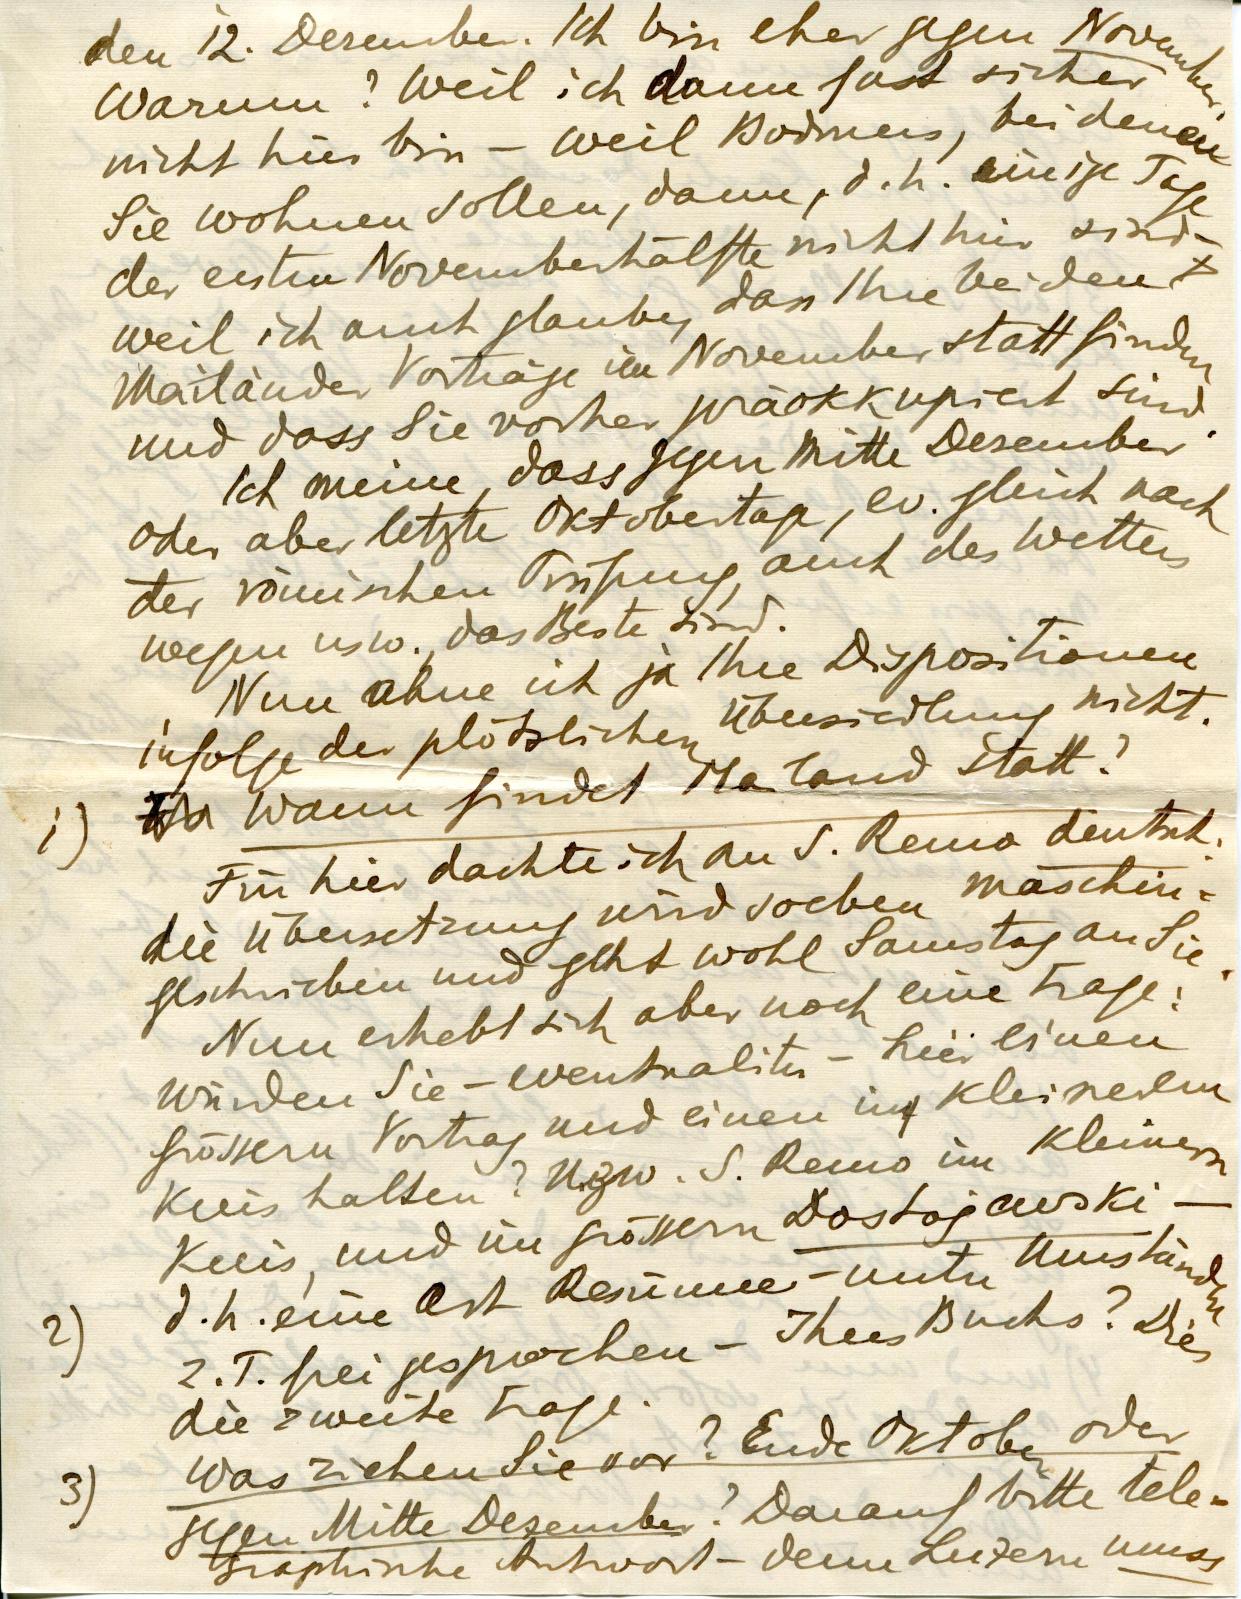 den 12. Dezember. Ich bin eher gegen November.
Warum? Weil ich dann fast sicher
nicht hier bin – weil Bodmers, bei denen
Sie wohnen sollen, dann, d.h. einige Tage
der ersten Novemberhälfte nicht hier sind –
weil ich auch glaube, dass Ihre beiden
Mailänder Vorträge im November stattfinden
und dass Sie vorher präokkupiert sind.
Ich meine, dass gegen Mitte Dezember
oder aber letzte Oktobertage, ev. gleich nach
der römischen Prüfung, auch des Wetters
wegen usw., das Beste sind.
Nun ahne ich ja Ihre Dispositionen
infolge der plötzlichen Übersiedlung nicht.
1) Wann findet Mailand statt?
Für hier dachte ich an S. Remo deutsch:
die Übersetzung wird soeben maschin=
geschrieben und geht wohl Samstag an Sie.
Nun erhebt sich aber noch eine Frage:
Würden Sie – eventualiter – hier einen
grössern Vortrag und einen im kleineren
Kreis halten? Uzw. S. Remo im kleinern
Kreis, und im grössern Dostojewski –
d.h. eine Art Resümee – unter Umständen
2) z. T. frei gesprochen – Ihres Buchs? Dies
die zweite Frage.
3) Was ziehen Sie vor? Ende Oktober oder
gegen Mitte Dezember? Darauf bitte tele=
graphische Antwort – denn Luzern muss